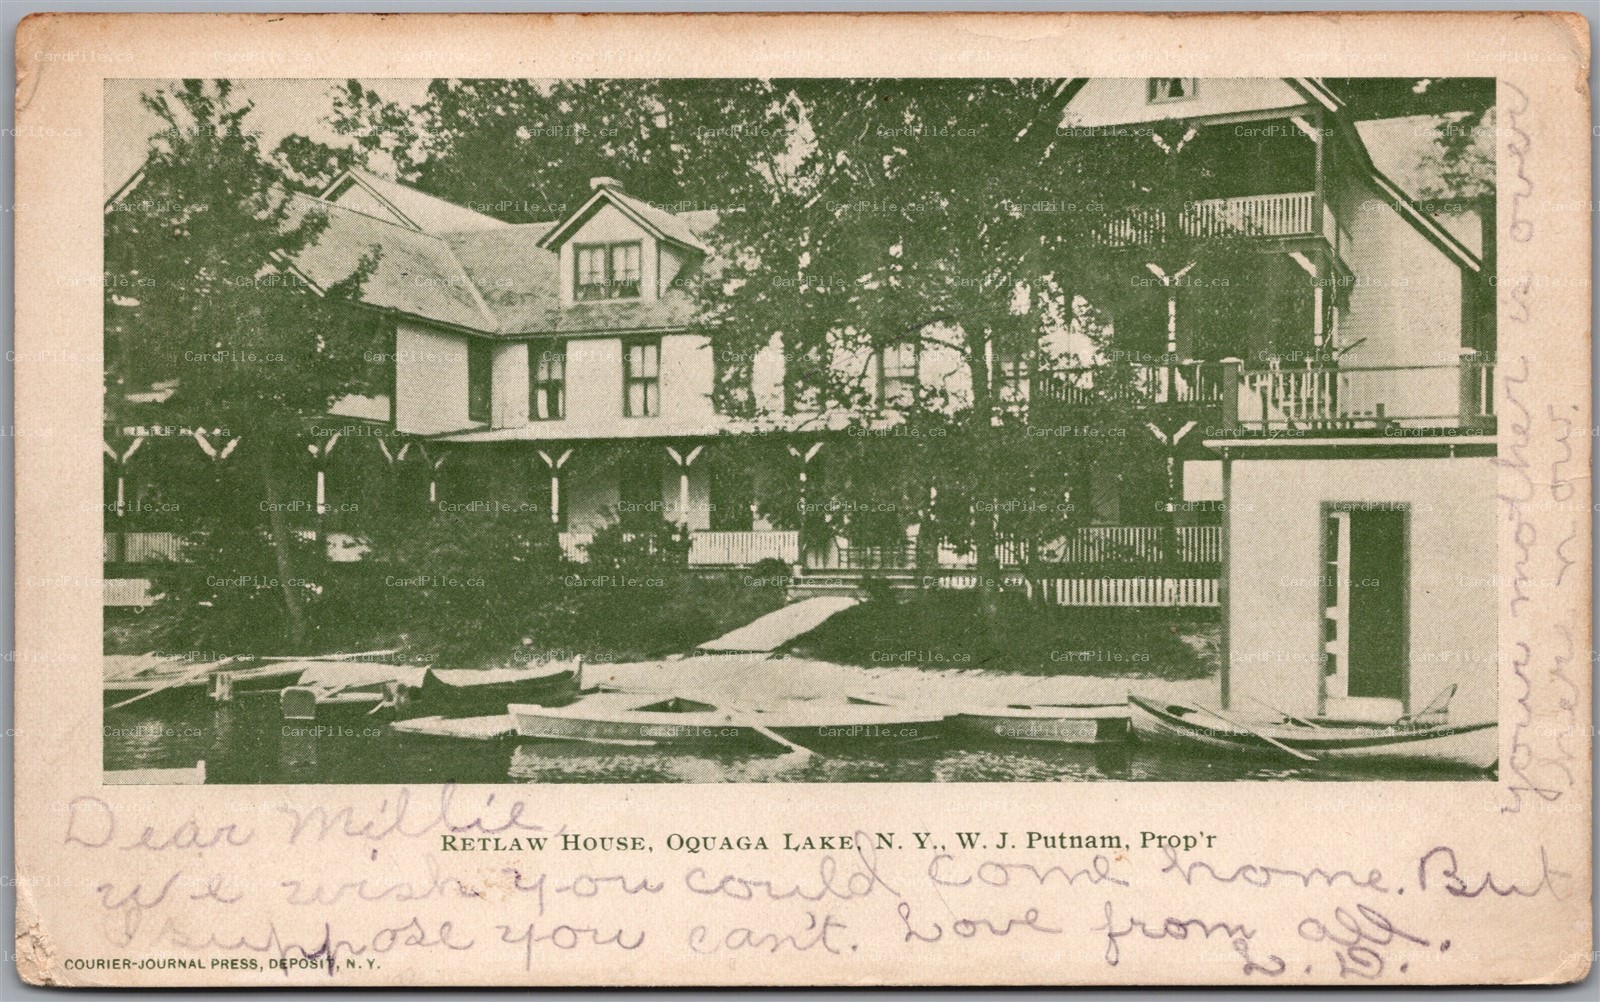 Dear Millie,
RETLAW HOUSE, OQUAGA LAKE, N. Y., W. J. Putnam, Prop'r
we wish you could come home. But
I suppose you can't. Love from all.
L. D.
COURIER-JOURNAL PRESS, DEPOSIT, N. Y.
your mother is over
here now.
CardPile.ca